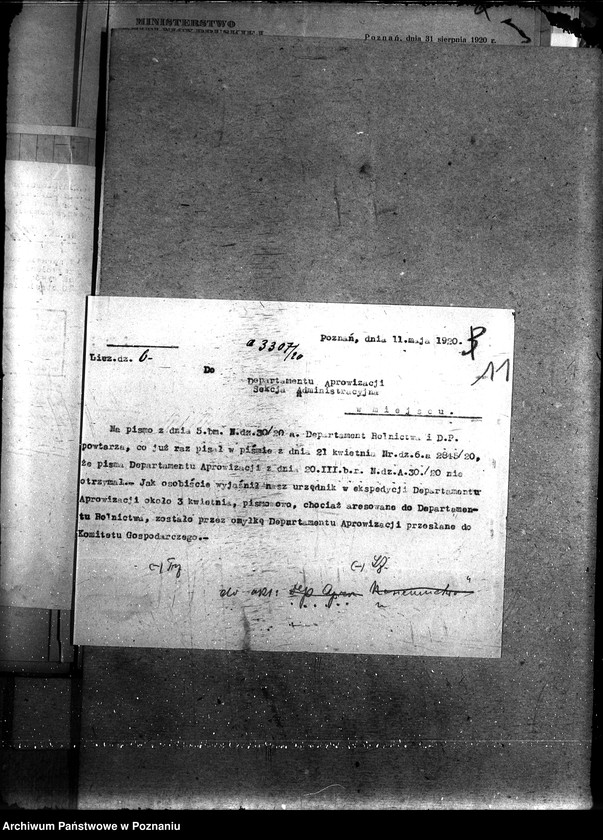 MINISTERSTWO
Poznań, dnia 31 sierpnia 1920 r.
Poznań, dnia 11.maja 1920.
11
Licz.dz. 6-
a 3307/20
Do
Departamentu Aprowizacji
Sekcja Administracyjna
w miejscu.
Na pismo z dnia 5.bm. N.dz.30/20 a. Departament Rolnictwa i D.P.
powtarza, co już raz pisał w piśmie z dnia 21 kwietnia Nr.dz.6.a 2845/20,
że pisma Departamentu Aprowizacji z dnia 20.III.b.r. N.dz.A.30./20 nie
otrzymał.- Jak osobiście wyjaśnił nasz urzędnik w ekspedycji Departamentu
Aprowizacji około 3 kwietnia, pismo owo, chociaż aresowane do Departamen-
tu Rolnictwa, zostało przez omyłkę Departamentu Aprowizacji przesłane do
Komitetu Gospodarczego.-
(-)
(-)
do akt:
Archiwum Państwowe w Poznaniu